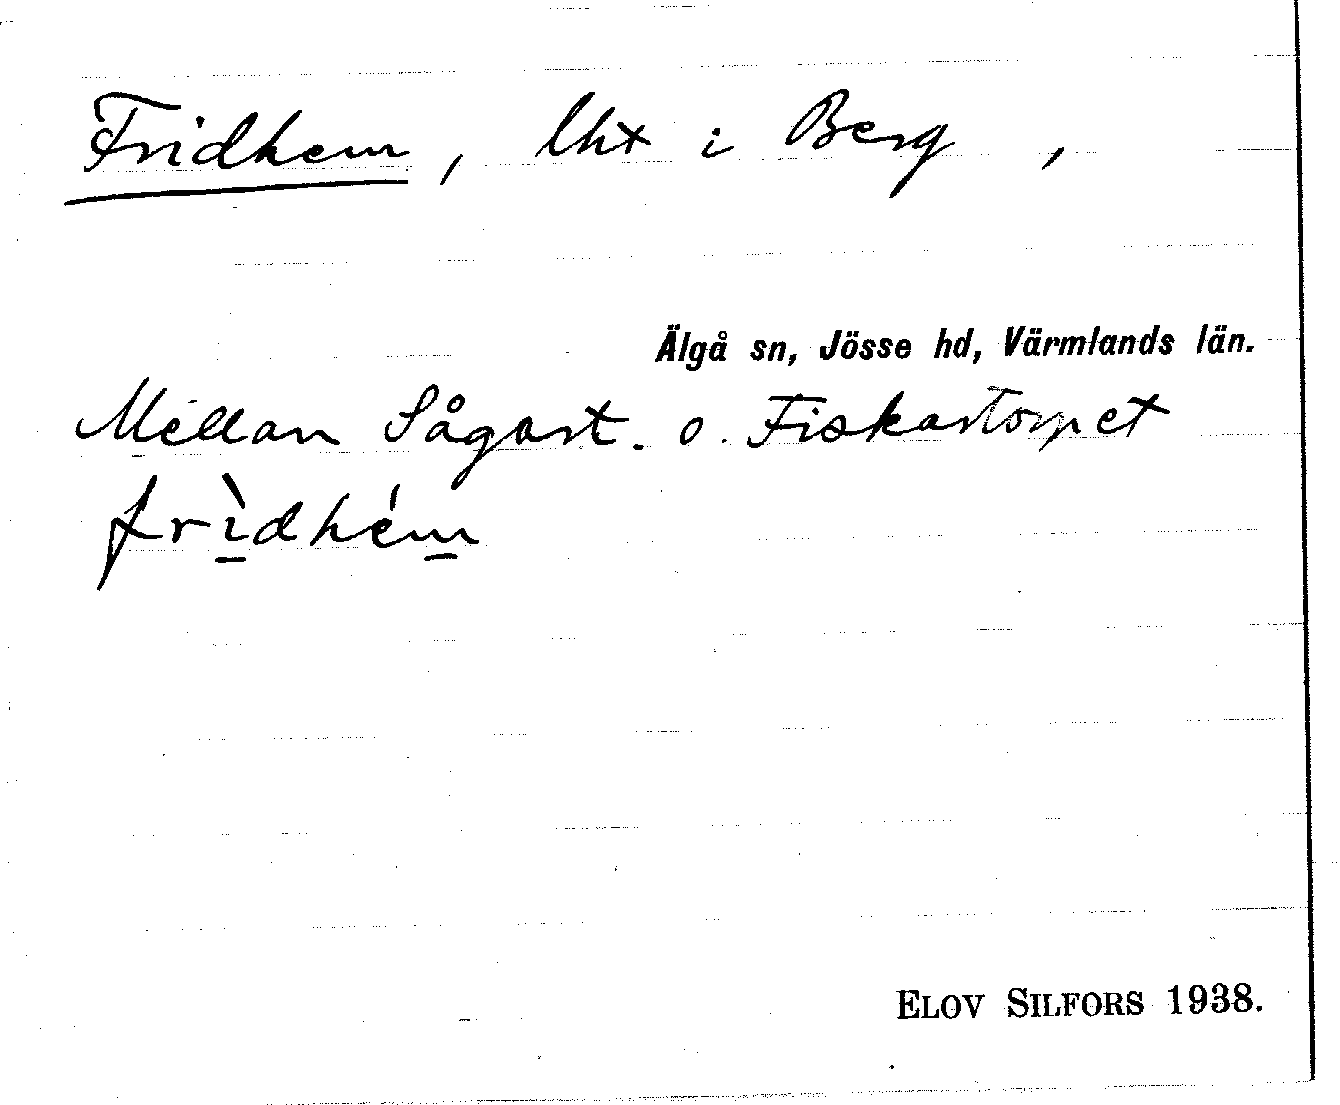 Fridhem, lht i Berg,
Älgå sn, Jösse hd, Värmlands län.
Mellan Sågart. o. Fiskartorpet
frìdhém
ELOV SILFORS 1938.